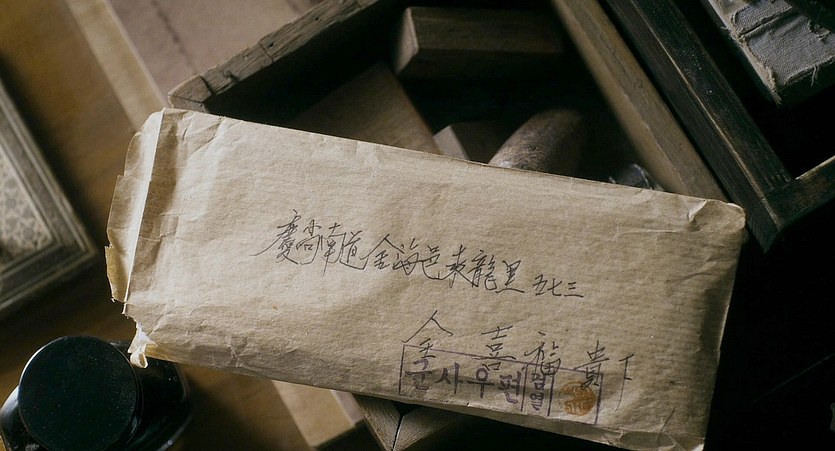 慶尙南道金海邑東龍里 五七三
金 喜 福 貴下
군사우편 검열